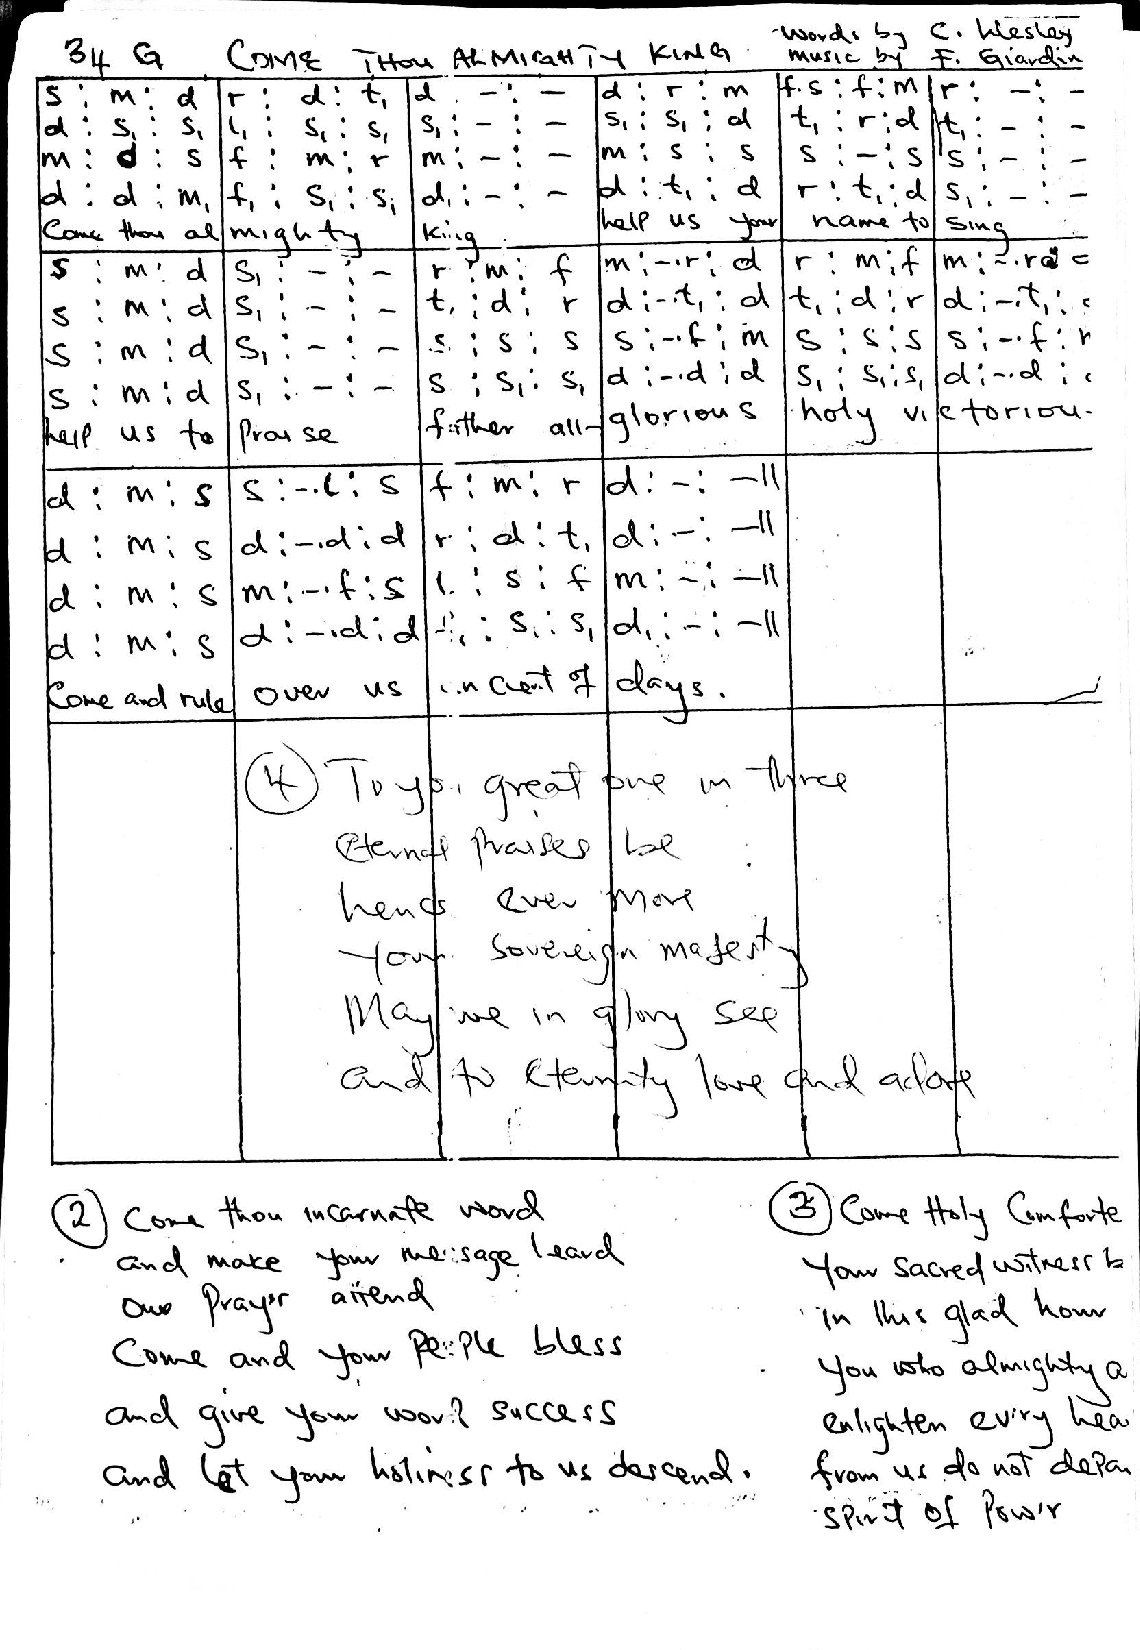 34 G COME THOU ALMIGHTY KING
Words by C. Wesley
music by F. Giardin
s : m : d | r : d : t, | d : - : - | d : r : m | f.s : f : m | r : - : -
d : s, : s, | l, : s, : s, | s, : - : - | s, : s, : d | t, : r : d | t, : - : -
m : d : s | f : m : r | m : - : - | m : s : s | s : - : s | s : - : -
d : d : m, | f, : s, : s, | d, : - : - | d : t, : d | r : t, : d | s, : - : -
Come thou al mighty King help us your name to sing
s : m : d | s, : - : - | r : m : f | m : -.r : d | r : m : f | m : -.r d
s : m : d | s, : - : - | t, : d : r | d : -.t, : d | t, : d : r | d : -.t, :
s : m : d | s, : - : - | s : s : s | s : -.f : m | s : s : s | s : -.f :
s : m : d | s, : - : - | s : s, : s, | d : -.d : d | s, : s, : s, | d : -.d :
help us to praise father all- glorious holy victoriou
d : m : s | s : -.l : s | f : m : r | d : - : - ||
d : m : s | d : -.d : d | r : d : t, | d : - : - ||
d : m : s | m : -.f : s | l : s : f | m : - : - ||
d : m : s | d : -.d : d | f, : s, : s, | d, : - : - ||
Come and rule over us incient of days.
4 To you great one in three
eternal praises be
hence ever more
your sovereign majesty
May we in glory see
and to eternity love and adore
2 Come thou incarnate word
and make your message heard
our pray'r attend
Come and your people bless
and give your word success
and let your holiness to us descend.
3 Come Holy Comforte
Your sacred witness b
in this glad hour
You who almighty a
enlighten ev'ry hea
from us do not depar
spirit of Pow'r